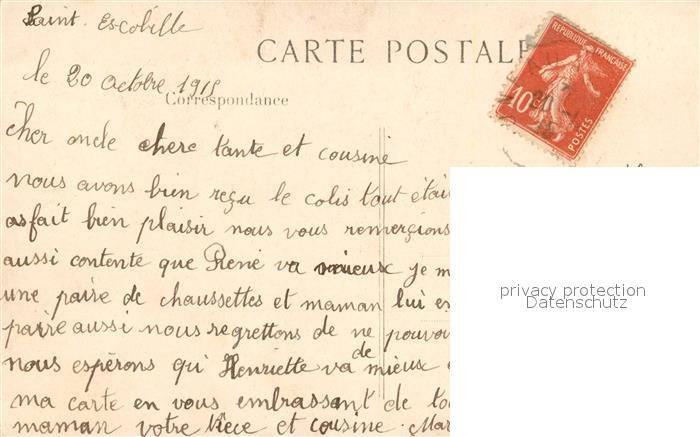 Saint Escobille
CARTE POSTALE
REPUBLIQUE FRANÇAISE
10c
POSTES
le 20 octobre 1915
Correspondance
Cher oncle chere tante et cousine
nous avons bien reçu le colis tout étai
as fait bien plaisir nous vous remerçions
aussi contente que René va mieux je m
une paire de chaussettes et maman lui en
paire aussi nous regrettons de ne pouvoi
nous espérons qu'Henriette va de mieux
ma carte en vous embrassant de to
maman votre Nièce et cousine. Mar
privacy protection
Datenschutz